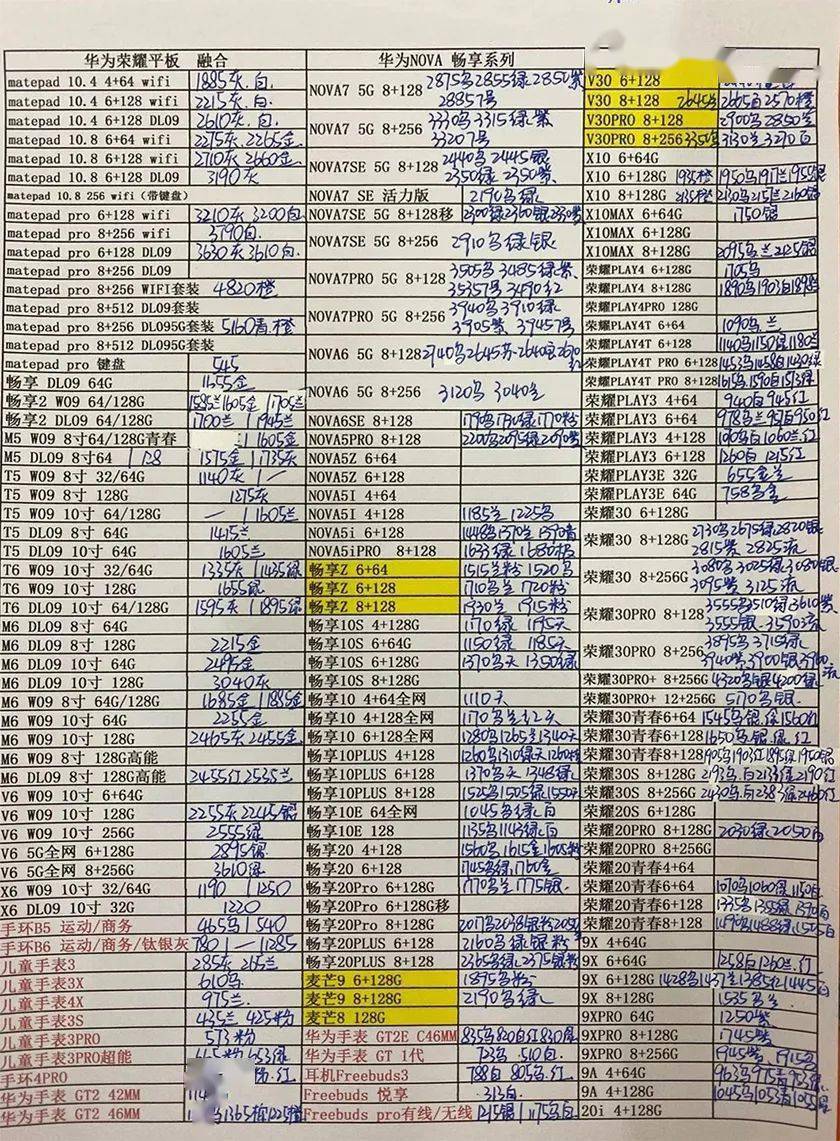 华为荣耀平板 融合
matepad 10.4 4+64 wifi 1885灰.白.
matepad 10.4 6+128 wifi 2215灰.白.
matepad 10.4 6+128 DL09 2610灰.白.
matepad 10.8 6+64 wifi 2275灰.2265金
matepad 10.8 6+128 wifi 2710灰 2660金
matepad 10.8 6+128 DL09 3190灰
matepad 10.8 256 wifi（带键盘）
matepad pro 6+128 wifi 3210灰 3200白.
matepad pro 8+256 wifi 3790白.
matepad pro 6+128 DL09 3630灰3610白.
matepad pro 8+256 DL09
matepad pro 8+256 WIFI套装 4820橙
matepad pro 8+512 DL09套装
matepad pro 8+256 DL095G套装 5160青.橙
matepad pro 8+512 DL095G套装
matepad pro 键盘 545
畅享 DL09 64G 1655金
畅享2 W09 64/128G 1585兰1605金 1705兰
畅享2 DL09 64/128G 1700兰 1945兰
M5 W09 8寸64/128G青春 1605金
M5 DL09 8寸64 128 1575金 1735灰
T5 W09 8寸 32/64G 1140灰 —
T5 W09 8寸 128G 1275灰
T5 W09 10寸 64/128G — 1605兰
T5 DL09 8寸 64G 1415兰
T5 DL09 10寸 64G 1605兰
T6 W09 10寸 32/64G 1335灰 1435绿
T6 W09 10寸 128G 1655绿
T6 DL09 10寸 64/128G 1595灰 1895绿
M6 DL09 8寸 64G
M6 DL09 8寸 128G 2215金
M6 DL09 10寸 64G 2495金
M6 DL09 10寸 128G 3040灰
M6 W09 8寸 64G/128G 1685金 1885金
M6 W09 10寸 64G 2255金
M6 W09 10寸 128G 2465灰2455金
M6 W09 8寸 128G高能
M6 DL09 8寸 128G高能 2455红2535兰
V6 W09 10寸 6+64G
V6 W09 10寸 128G 2255灰2245银
V6 W09 10寸 256G 2555绿
V6 5G全网 6+128G 2895银
V6 5G全网 8+256G 3610绿
X6 W09 10寸 32/64G 1190 1250
X6 DL09 10寸 32G 1220
手环B5 运动/商务 465乌 540
手环B6 运动/商务/钛银灰 780 — 1285
儿童手表3 285灰
儿童手表3X 610乌
儿童手表4X 975兰
儿童手表3S 435兰 425粉
儿童手表3PRO 573粉
儿童手表3PRO超能
手环4PRO
华为手表 GT2 42MM
华为手表 GT2 46MM
华为NOVA 畅享系列
NOVA7 5G 8+128 2875乌2855绿2850紫
28857号
NOVA7 5G 8+256 3330乌3315绿紫
33207号
NOVA7SE 5G 8+128 2440乌2445银
2350绿2350紫
NOVA7 SE 活力版 2190乌绿
NOVA7SE 5G 8+128移 2300绿2360银2330紫
NOVA7SE 5G 8+256 2910乌绿银
NOVA7PRO 5G 8+128 3505乌 3485绿紫
35357号3490红
NOVA7PRO 5G 8+256 3940乌 3910绿
3905紫 39457号
NOVA6 5G 8+128 2740乌2645苏2640兰2670红
NOVA6 5G 8+256 3120乌 3040兰
NOVA6SE 8+128
NOVA5PRO 8+128 2200乌2095绿2090紫
NOVA5Z 6+64
NOVA5Z 6+128
NOVA5I 4+64
NOVA5I 4+128 1185兰 1225乌
NOVA5i 6+128
NOVA5iPRO 8+128 1633绿 1680橙
畅享Z 6+64 1515兰粉 1520乌
畅享Z 6+128 1710乌兰 1720粉
畅享Z 8+128 1930兰 1915粉
畅享10S 4+128G 1170绿 1195天
畅享10S 6+64G 1150绿 1185天
畅享10S 6+128G 1370乌天 1350绿
畅享10S 8+128G
畅享10 4+64全网 1110天
畅享10 4+128全网
畅享10 6+128全网 1280乌1265兰1340天
畅享10PLUS 4+128 1260乌1310绿天1260橙
畅享10PLUS 6+128 1370乌天 1348绿
畅享10PLUS 8+128 1525乌1505绿1550天
畅享10E 64全网 1045乌绿白
畅享10E 128 1135乌1143绿白
畅享20 4+128 1560乌1615金1605粉
畅享20 6+128 1745乌绿1760金
畅享20Pro 6+128G 1770乌兰1775银.
畅享20Pro 6+128G移
畅享20Pro 8+128G
畅享20PLUS 6+128 2160乌绿银粉
畅享20PLUS 8+128 2365乌绿2375银粉
麦芒9 6+128G 1895乌粉
麦芒9 8+128G 2190乌绿
麦芒8 128G
华为手表 GT2E C46MM 835乌820白红830绿
华为手表 GT 1代 723乌.510白.
耳机Freebuds3 788白 805乌.红
Freebuds 悦享 313白.
Freebuds pro有线/无线 1215银 1175乌白
V30 6+128
V30 8+128 2645乌 2665白2570橙
V30PRO 8+128 2900乌2850兰
V30PRO 8+256 3350乌 3130兰3270白
X10 6+64G
X10 6+128G 1935橙 1950乌1917兰1955银
X10 8+128G 2135橙 2130乌2157兰2160银
X10MAX 6+64G 1750银
X10MAX 6+128G
X10MAX 8+128G 2095乌兰2125银
荣耀PLAY4 6+128G 1705乌
荣耀PLAY4 8+128G
荣耀PLAY4PRO 128G
荣耀PLAY4T 6+64 1090乌兰
荣耀PLAY4T 6+128 1140乌1150绿1180兰
荣耀PLAY4T PRO 6+128 1453乌1458白1430绿
荣耀PLAY4T PRO 8+128 1615乌1590白1573绿
荣耀PLAY3 4+64 940白945红
荣耀PLAY3 6+64
荣耀PLAY3 4+128 1060兰红
荣耀PLAY3 6+128 1260白1215红
荣耀PLAY3E 32G 655金兰
荣耀PLAY3E 64G 758乌金
荣耀30 6+128G
荣耀30 8+128G 2730乌2675绿2820银
2815紫 2825流
荣耀30 8+256G 3080乌3025绿3080银
3095紫 3125流
荣耀30PRO 8+128 3555乌3510绿3610紫
3555银.3590流
荣耀30PRO 8+256 3895乌3715绿
3940紫3900银
荣耀30PRO+ 8+256G 4320乌银4200绿
荣耀30PRO+ 12+256G 5170乌银
荣耀30青春6+64 1545乌银绿1560红
荣耀30青春6+128 1650乌银绿红
荣耀30青春8+128
荣耀30S 8+128G
荣耀30S 8+256G
荣耀20S 6+128G
荣耀20PRO 8+128G 2030绿2050白
荣耀20PRO 8+256G
荣耀20青春4+64
荣耀20青春6+64 1070乌1060绿1150白
荣耀20青春6+128 1335乌1385绿1390白
荣耀20青春8+128
9X 4+64G
9X 6+64G 1258白1260.红
9X 6+128G 1428乌1437兰1385红1445白
9X 8+128G 1535乌兰
9XPRO 64G 1250紫
9XPRO 8+128G 1745紫
9XPRO 8+256G 1945紫.1915乌
9A 4+64G
9A 4+128G
20i 4+128G